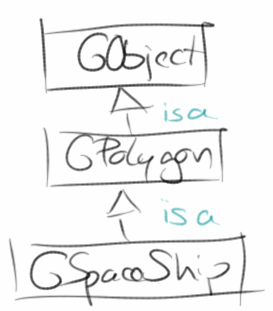 GObject
is a
GPolygon
is a
GSpaceShip